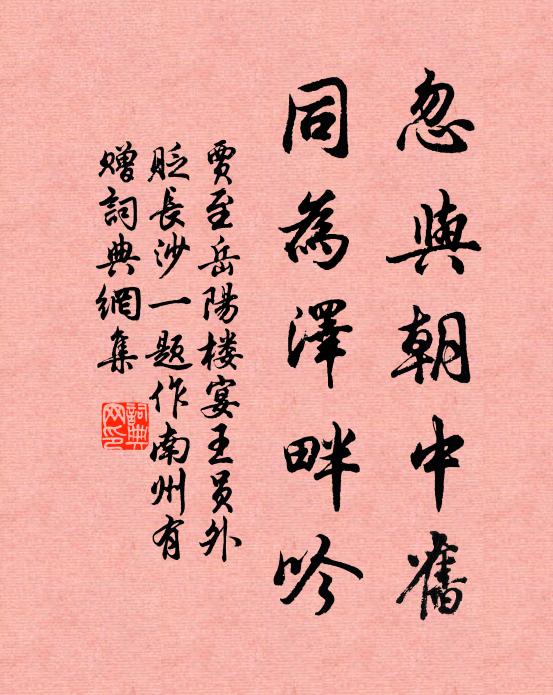 忽與朝中舊
同為澤畔吟
賈至岳陽楼宴王員外
貶長沙一题作南州有
赠詞典網集
詞典網印